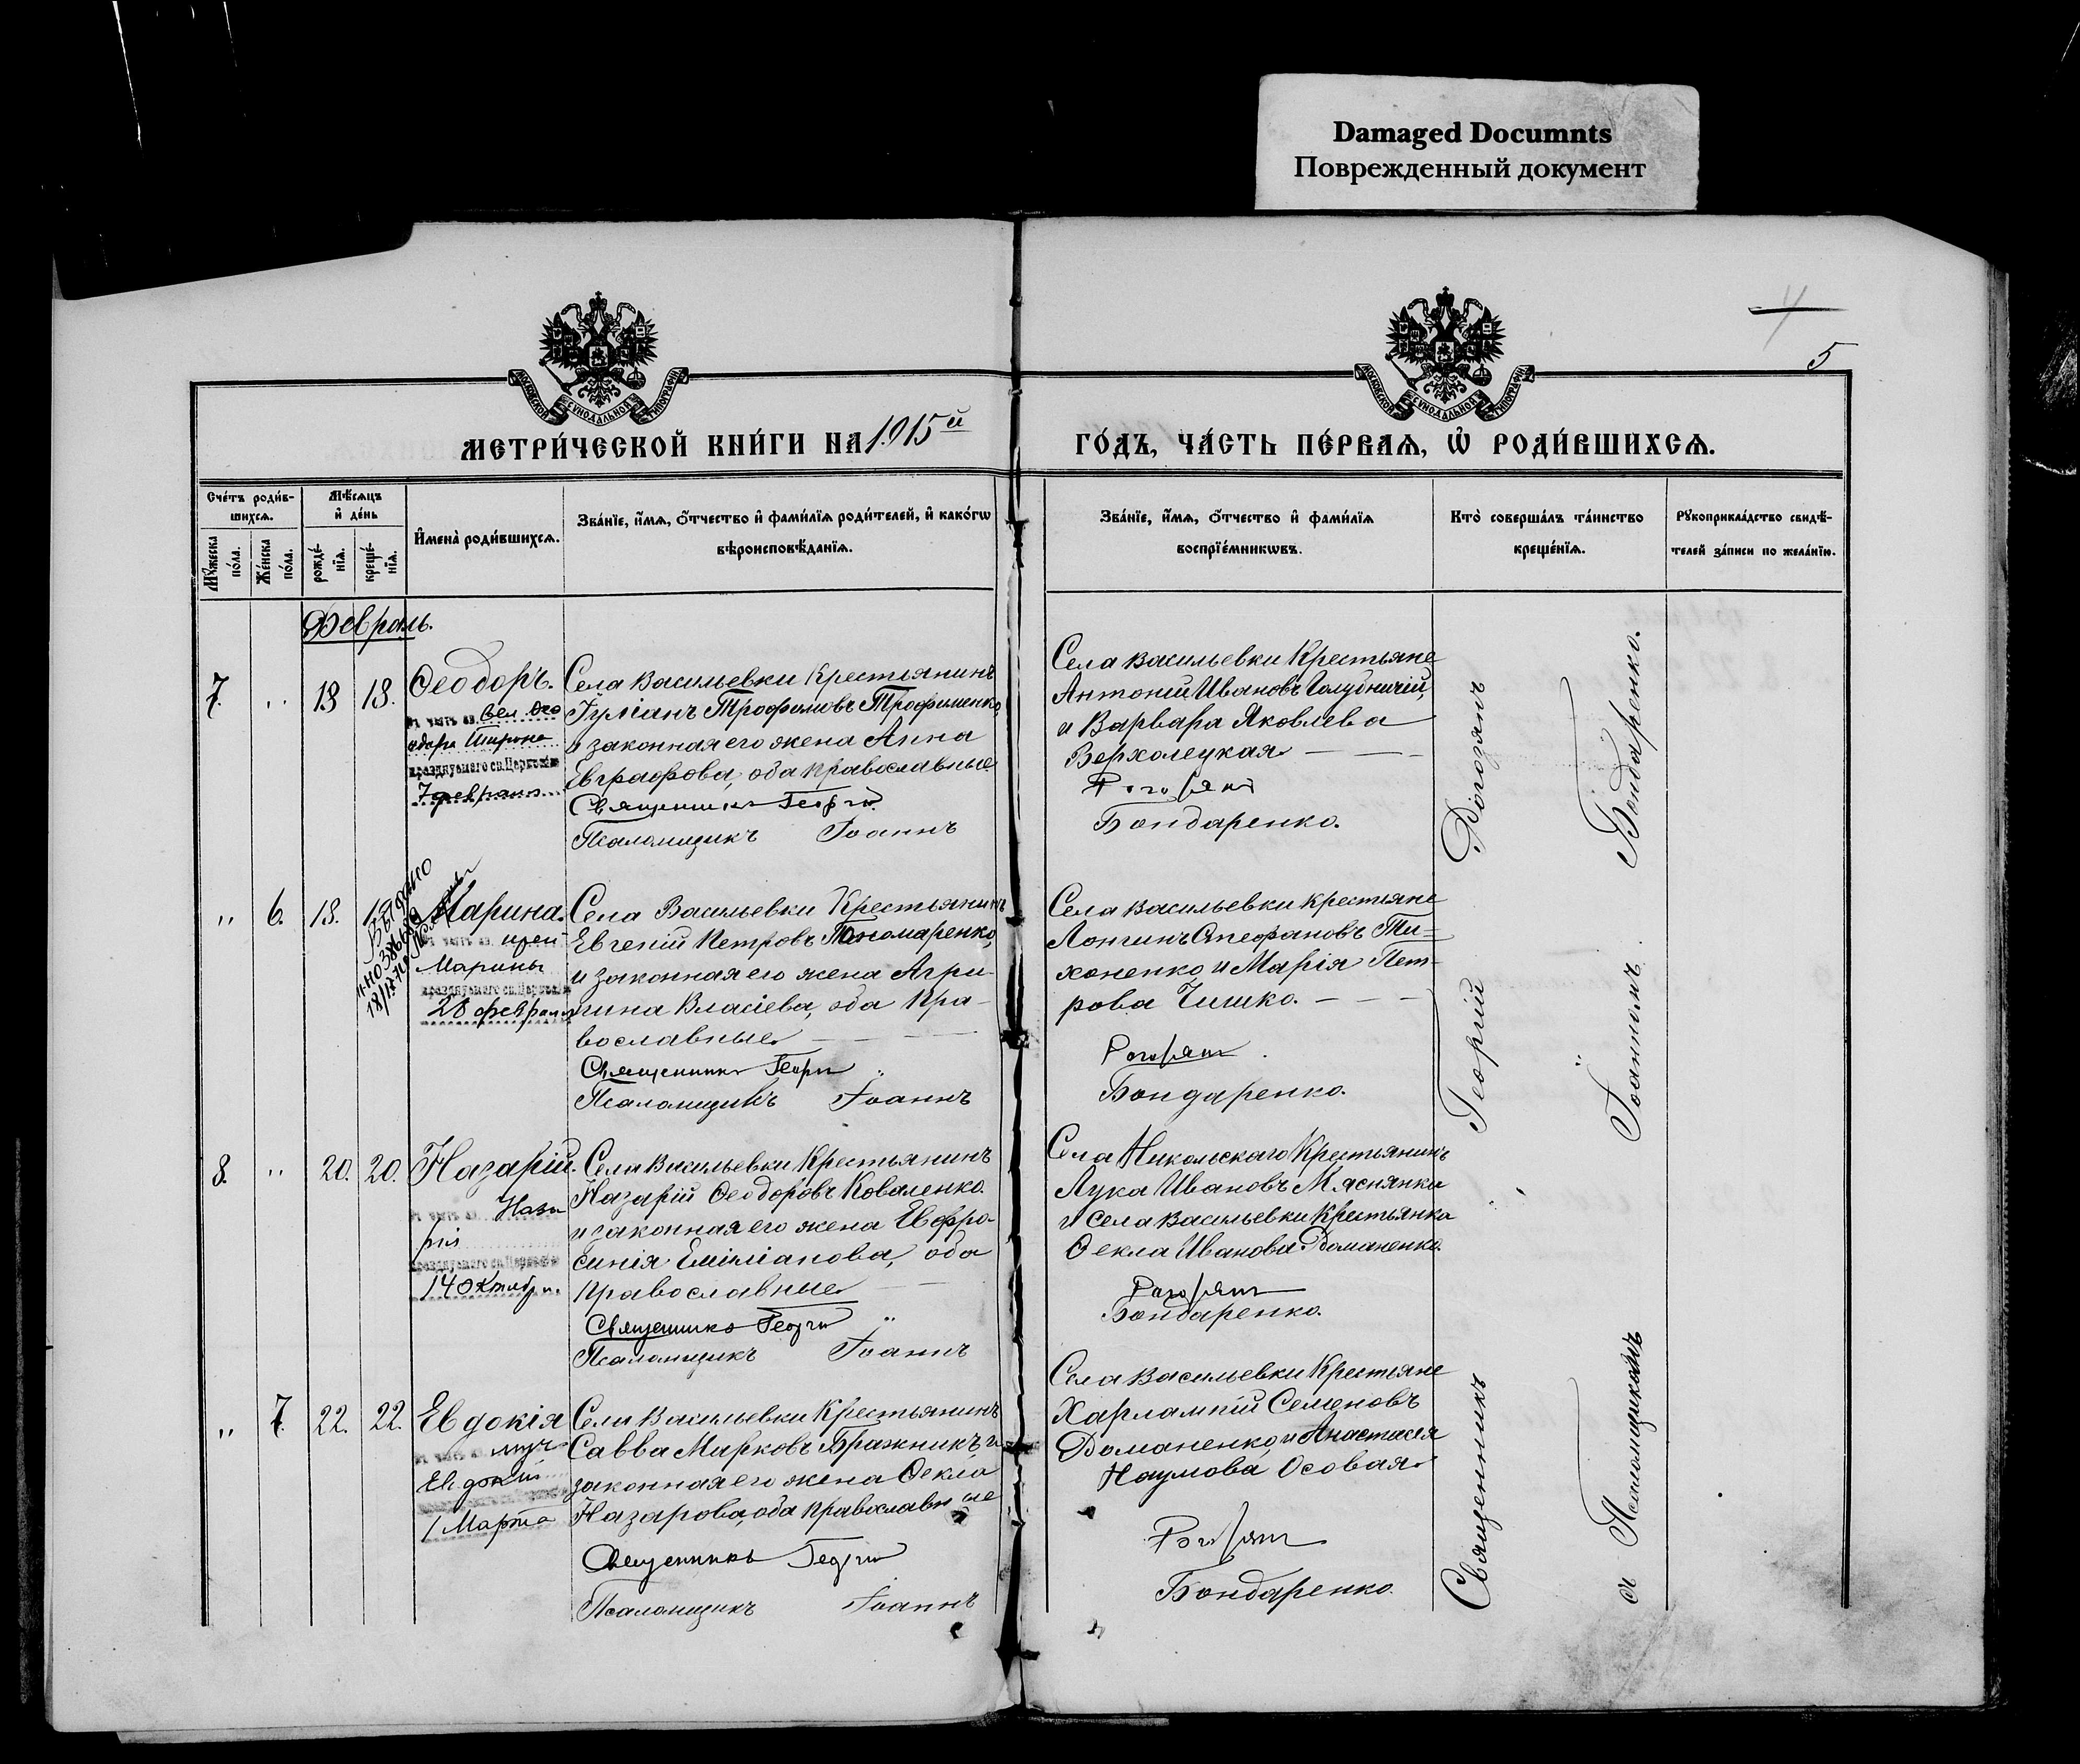 Damaged Documnts
Поврежденный документ
4
5
МОСКОВСКОЙ СУНОДАЛЬНОЙ ТИПОГРАФІИ
МОСКОВСКОЙ СУНОДАЛЬНОЙ ТИПОГРАФІИ
МЕТРИ́ЧЕСКОЙ КНИ́ГИ НА 1915й
ГО́ДЪ, ЧА́СТЬ ПЕ́РВАѦ, Ѡ҆ РОДИ́ВШИХСѦ.
Сче́тъ роди́в-
шихсѧ.
Мꙋ́жеска по́ла.
Же́нска по́ла.
Мѣ́сѧцъ
и҆ де́нь
рожде́-
нїѧ.
креще́-
нїѧ.
И҆мена̀ роди́вшихсѧ.
Зва́нїе, и҆́мѧ, ѻ҆́тчество и҆ фами́лїѧ роди́телей, и҆ како́гѡ
вѣроисповѣ́данїѧ.
Зва́нїе, и҆́мѧ, ѻ҆́тчество и҆ фами́лїѧ
воспрїе́мникѡвъ.
Кто̀ соверша́лъ та́инство
креще́нїѧ.
Рꙋкоприкла́дство свидѣ́-
телей за́писи по жела́нїю.
Февраль.
7. " 18 18. Ѳеодоръ.
въ честь св. вел. Ѳео
дора Тирона
празднуемаго св. Церковію
7 февраля
Села Васильевки Крестьянинъ
Іуліанъ Трофимовъ Трофименко,
и законная его жена Анна
Евграфова, оба православные.
Священникъ Георгій
Псаломщикъ Іоаннъ
Села Васильевки Крестьяне
Антоній Ивановъ Голубничій,
и Варвара Яковлева
Верхолецкая
Рогозянъ
Бондаренко.
" 6. 18. Марина.
Выдано
въ честь св.
Марины
празднуемаго св. Церковію
28 февраля
Села Васильевки Крестьянинъ
Евгеній Петровъ Пономаренко,
и законная его жена Агри-
пина Власіева, оба пра-
вославные
Священникъ Георгій
Псаломщикъ Іоаннъ
Села Васильевки крестьяне
Лонгинъ Стефановъ Ти=
хоненко и Марія Пет-
рова Чишко.
Рогозянъ
Бондаренко.
8. " 20. 20. Назарій.
въ честь св. Наза
рія
празднуемаго св. Церковію
14 Октября.
Села Васильевки Крестьянинъ
Назарій Ѳеодоровъ Коваленко.
и законная его жена Евфро-
синія Еміліанова, оба
православные
Священникъ Георгій
Псаломщикъ Іоаннъ
Села Никольскаго Крестьянинъ
Лука Ивановъ Маснянка
и села Васильевки Крестьянка
Ѳекла Иванова Доманенко.
Рогозянъ
Бондаренко.
" 7. 22. 22. Евдокія
въ честь св. муч
Евдокіи
1 Марта
Села Васильевки Крестьянинъ
Савва Марковъ Бражникъ, и
законная его жена Ѳекла
Назарова, оба православные
Священникъ Георгій
Псаломщикъ Іоаннъ
Села Васильевки Крестьяне
Харлампій Семеновъ
Доманенко, и Анастасія
Наумова Осовая
Рогозянъ
Бондаренко.
Священникъ Георгій Рогозянъ
съ Псаломщикомъ Іоанномъ Бондаренко.